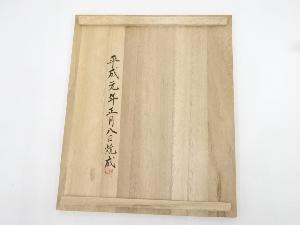 平成元年正月八日焼成